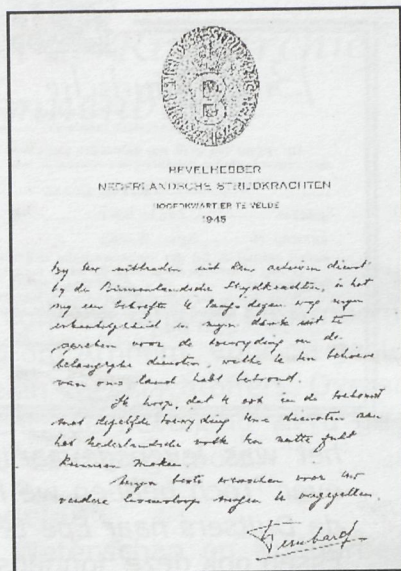 B
BEVELHEBBER
NEDERLANDSCHE STRIJDKRACHTEN
HOOFDKWARTIER TE VELDE
1945
By Uw uittreden uit den actieven dienst
by de Binnenlandsche Strydkrachten, is het
my een behoefte U langs dezen weg myn
erkentelykheid en myn dank uit te
spreken voor de toewyding en de
belangryke diensten, welke U ten behoeve
van ons land hebt betoond.
Ik hoop, dat U ook in de toekomst
met dezelfde toewyding Uwe diensten aan
het Nederlandsche volk ten nutte zult
kunnen maken.
Myn beste wenschen voor Uw
verdere levensloop mogen U vergezellen.
Bernhard